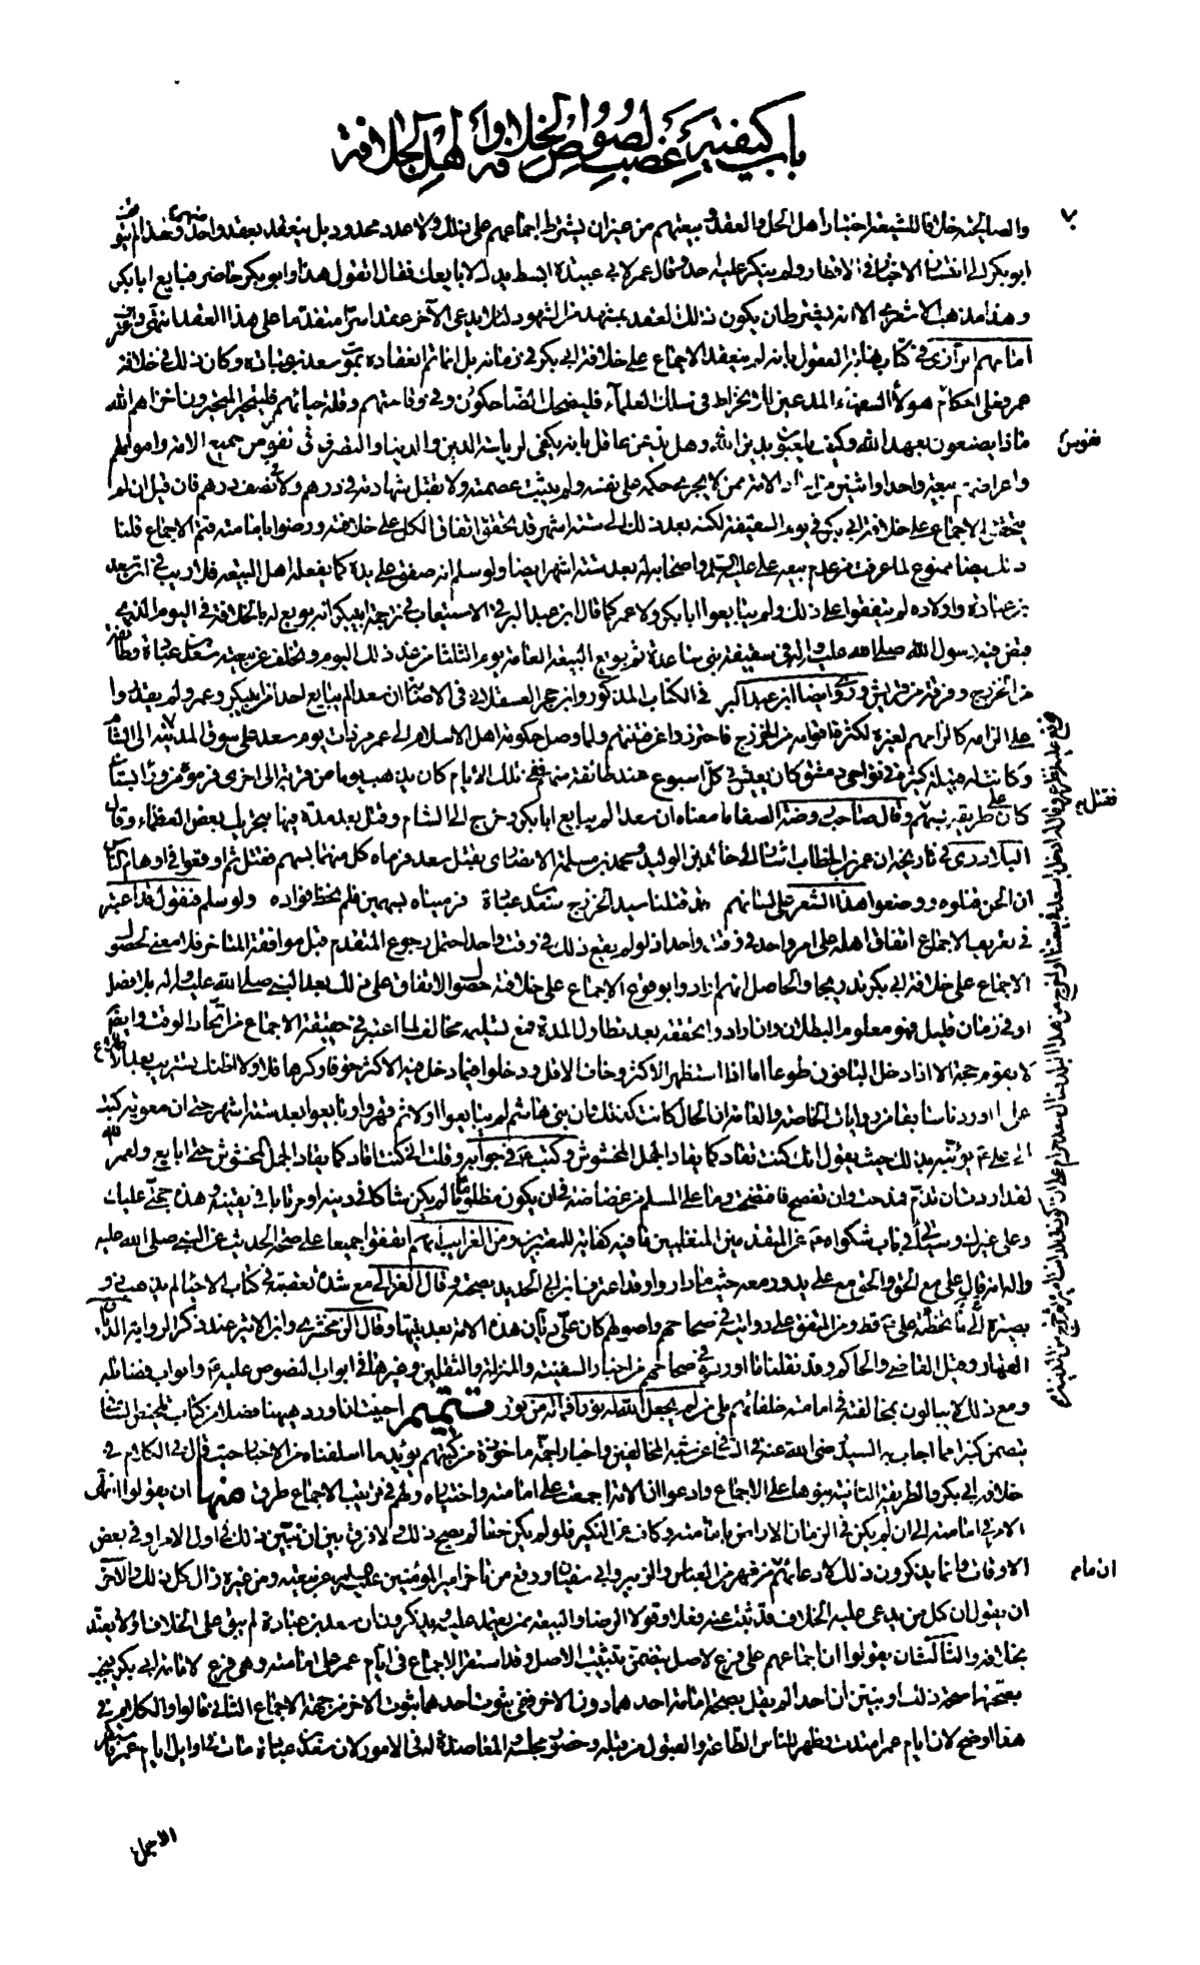 باب كيفية غصب لصوص الخلافة وأهل الجلافة
والصحابة خلافا للشيعة اختيار أهل الحل والعقد وبيعتهم من غير ان يشترط اجماعهم على ذلك ولا عدد محدود بل ينعقد بعقد واحد منهم ولهذا لم يتوقف
ابو بكر الى انتشار الاخبار في الاقطار ولم ينكر عليه احد وقال عمر لابي عبيدة ابسط يدك لابايعك فقال اتقول هذا وابو بكر حاضر فبايع ابا بكر
وهذا مذهب الاشعري الا انه يشترط ان يكون ذلك العقد بمشهد من الشهود لئلا يدعى الآخر عقدا سرا متقدما على هذا العقد انتهى واعترف
امامهم الرازي في كتاب نهاية العقول بانه لم ينعقد الاجماع على خلافة ابي بكر في زمانه بل انما تم انعقاده بموت سعد بن عبادة وكان ذلك في خلافة
عمر فعلى احكام هؤلاء السفهاء المدعين للانخراط في سلك العلماء فليضحك الضاحكون وفي وقاحتهم وقلة حيائهم فليتحير المتحيرون اخزاهم الله
ماذا يصنعون بعهد الله وكيف يلعبون بدين الله وهل يذعن عاقل بانه يكفي لرياسة الدين والدنيا والتصرف في نفوس جميع الامة واموالهم
نفوس
واعراضهم بيعة واحد او اثنين من آحاد الامة ممن لا يجري حكمه على نفسه ولم يثبت عصمته ولا تقبل شهادته في درهم ولا نصف درهم فان قيل ان لم
يتحقق الاجماع على خلافة ابي بكر في يوم السقيفة لكنه بعد ذلك الى ستة اشهر قد تحقق اتفاق الكل على خلافته ورضوا بامامته فتم الاجماع قلنا
ذلك ايضا ممنوع لما عرفت من عدم بيعة علي عليه السلام واصحابه له بعد ستة اشهر ايضا ولو سلم انه صفق على يده كما يفعله اهل البيعة فلا ريب في ان سعد
بن عبادة واولاده لم يتفقوا على ذلك ولم يبايعوا ابا بكر ولا عمر كما قال ابن عبد البر في الاستيعاب في ترجمة ابي بكر انه بويع له بالخلافة في اليوم الذي
قبض فيه رسول الله صلى الله عليه وآله في سقيفة بني ساعدة ثم بويع البيعة العامة يوم الثلثا من غد ذلك اليوم وتخلف عن بيعته سعد بن عبادة وطائفة
من الخزرج وفرقة من قريش وروى ايضا ابن عبد البر في الكتاب المذكور وابن حجر العسقلاني في الاصابة ان سعدا لم يبايع احدا من ابي بكر وعمر ولم يقدروا
على الزامه كالزامهم لغيره لكثرة اقوامه من الخزرج فاحترزوا عن فتنتهم ولما وصل حكومة اهل الاسلام الى عمر مر ذات يوم سعد على سوق المدينة
وكانت له قبيلة كثيرة في نواحي دمشق كان يعيش في كل اسبوع عند طائفة منهم ففي تلك الايام كان يذهب يوما من قرية الى اخرى فرموه من وراء بستان
كان على طريقه بسهم فقتل وقال صاحب روضة الصفا ما معناه ان سعدا لم يبايع ابا بكر وخرج الى الشام وقتل بعد مدة فيها بتحريك بعض العظماء وقال
فقتل به
البلاذري في تاريخه ان عمر بن الخطاب اشار الى خالد بن الوليد ومحمد بن مسلمة الانصاري بقتل سعد فرماه كل منهما بسهم فقتل ثم اوقعوا في اوهام الناس
ان الجن قتلوه ووضعوا هذا الشعر على لسانهم قد قتلنا سيد الخزرج سعد بن عبادة فرميناه بسهمين فلم نخط فؤاده ولو سلم فنقول قد اعتبر
في تعريف الاجماع اتفاق اهله على امر واحد في وقت واحد اذ لو لم يقع ذلك في وقت واحد احتمل رجوع المتقدم قبل موافقة المتاخر فلا معنى لحصول
الاجماع على خلافة ابي بكر تدريجا والحاصل انهم ان ارادوا بوقوع الاجماع على خلافته حصول الاتفاق على ذلك بعد النبي صلى الله عليه وآله بلا فصل
او في زمان قليل فهو معلوم البطلان وان ارادوا تحققه بعد تطاول المدة فمع تسليمه مخالف لما اعتبر في حقيقة الاجماع من اتحاد الوقت وايضا
لا يقوم حجة الا اذا دخل الباقون طوعا اما اذا استظهر الاكثر وخاف الاقل ودخلوا فيما دخل فيه الاكثر خوفا وكرها فلا ولا اظنك تستريب بعد الاطلاع
على ما اوردنا سابقا من روايات الخاصة والعامة ان الحال كانت كذلك وان بني هاشم لم يبايعوا اولا ثم قهروا وبايعوا بعد ستة اشهر حتى ان معوية كتب
الى علي ع يؤنبه بذلك حيث يقول انك كنت تقاد كما يقاد الجمل المخشوش وكتب ع في جوابه وقلت اني كنت اقاد كما يقاد الجمل المخشوش حتى ابايع ولعمر الله
لقد اردت ان تذم فمدحت وان تفضح فافتضحت وما على المسلم من غضاضة في ان يكون مظلوما ما لم يكن شاكا في دينه او مرتابا في يقينه وهذه حجتي عليك
وعلى غيرك وسياتي في باب شكواه ع عن المتقدمين المتغلبين ما فيه كفاية للمعتبرين ومن الغرايب انهم اتفقوا جميعا على صحة الحديث عن النبي صلى الله عليه
وآله انه قال علي مع الحق والحق مع علي يدور معه حيث ما دار واعترف ابن ابي الحديد بصحته وقال الغزالي مع شدة تعصبه في كتاب الاحياء لم يذهب ذو
بصيرة الى تخطئة علي ع قط ومن المتفق على روايته في صحاحهم واصولهم كان علي ديان هذه الامة بعد نبيها وقال الزمخشري وابن الاثير عند ذكر الرواية الديان
القهار وقيل القاضي والحاكم وقد نقلنا ما اورده في صحاحهم من اخبار السفينة والمنزلة والثقلين وغيرها في ابواب النصوص عليه ع وابواب فضائله
ومع ذلك لا يبالون بمخالفته في امامة خلفائهم بل من لم يجعل الله له نورا فما له من نور تتميم احببت ان اورد ههنا فصلا من كتاب تلخيص الشافي
يتضمن كثيرا مما اجاب به السيد رضي الله عنه في الشافي عن شبه المخالفين واخبارا جمة ماخوذة من كتبهم يؤيد ما اسلفناه من الاخبار حيث قال في الكلام في
خلافة ابي بكر والطريقة الثانية بنوها على الاجماع وادعوا ان الامة اجمعت على امامته واختياره ولهم في ترتيب الاجماع طرق منها ان يقولوا انتهى
الامر في امامته الى ان لم يكن في الزمان الا راض بامامته وكاف عن النكير فلو لم يكن حقا لم يصح ذلك ولا فرق بين ان نبين ذلك في اول الامر او في بعض
الاوقات وانما يذكرون ذلك لادعائهم من قهر من العباس والزبير وابي سفيان ووقع من تاخر امير المؤمنين عليه السلام عن بيعته ومن غيره زال كل ذلك والآخر
ان ما م
ان يقول ان كل من يدعى عليه الخلاف قد ثبت عنه فعلا وقولا الرضا والبيعة ممن يعتمد عليه ويذكرون ان سعد بن عبادة لم يبق على الخلاف او لا يعتد
بخلافه والثالث ان يقولوا ان اجماعهم على فرع لاصل يتضمن تثبيت الاصل وقد استقر الاجماع في ايام عمر على امامته وهي فرع لامامة ابي بكر
بصحتها صحة ذلك او يبين ان احدا لم يقل بصحة امامة احدهما دون الآخر ففي ثبوت احدهما ثبوت الآخر من جهة الاجماع الثاني قالوا والكلام في
هذا اوضح لان ايام عمر امتدت وظهر للناس الطاعة والقبول من قبله وحضور مجلسه والمعاضدة له في الامور لان سعد بن عبادة مات في اوايل ايام عمر فاستقر
الاجماع